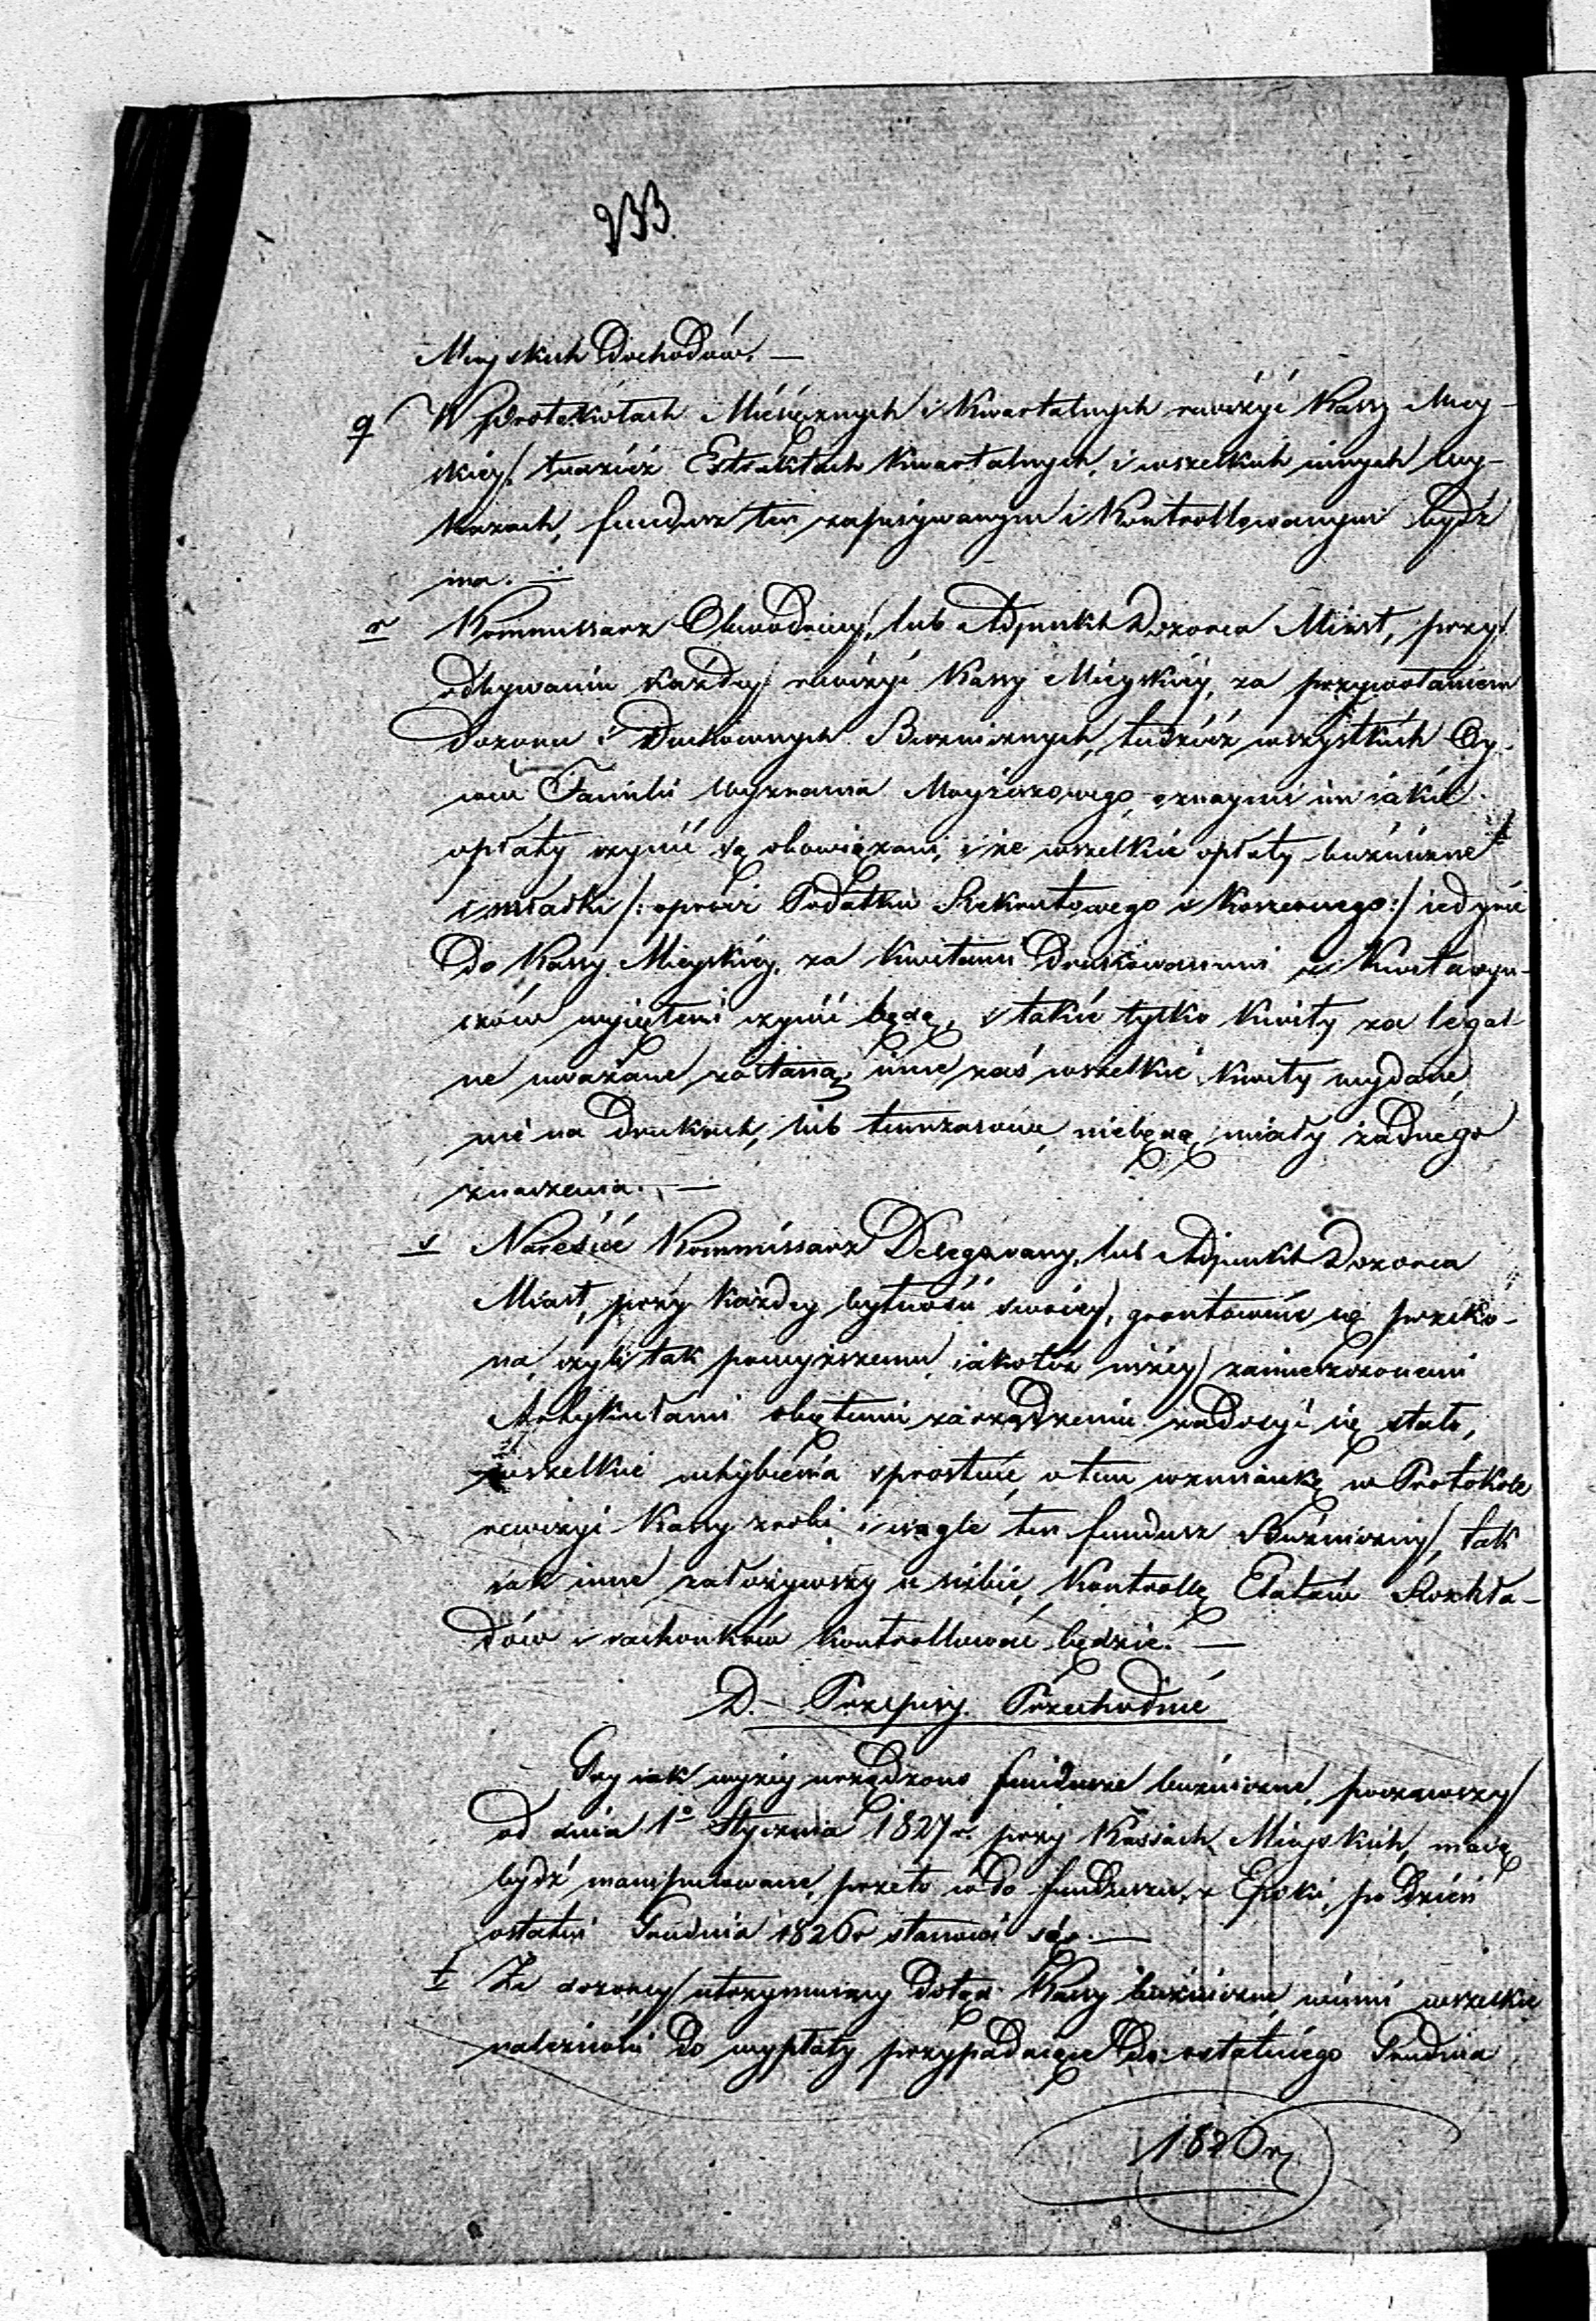 233.
Mieyskich Dochodów. —
q W Protokołach Miesięcznych i Kwartalnych rewizyi Kassy Miey-
skiey, tudzież Extraktach kwartalnych, i wszelkich innych wy-
kazach, fundusz ten zapisywanym i Kontrollowanym bydź
ma. —
r Kommissarz Obwodowy, lub Adjunkt Dozorca Miast, przy
odbywaniu każdey rewizyi Kassy Mieyskiey, za przywołaniem
Dozoru i Duchownych Bużniczych, tudzież wszystkich Oy-
ców Familii wyznania Moyżeszowego, oznaymi im iakie
opłaty czynić są obowiązani, i że wszelkie opłaty bużniczne
i składki /: oprócz Podatku Rekrutowego i Koszernego :/ iedynie
do Kassy Mieyskiey, za kwitami drukowanemi z Kwitaryu-
szów wyiętemi czynić będą, i takie tylko kwity za legal-
ne uważane zostaną; inne zaś wszelkie kwity wydane,
nie na drukach, lub tymczasowe, niebędą miały żadnego
znaczenia. —
s Nareście Kommissarz Delegowany, lub Adjunkt Dozorca
Miast, przy każdey bytności swoiey, gruntownie się przeko-
na, czyli tak powyższemu, iakoteż niżey zamieszczonemi
Artykułami obiętemu zarządzeniu zadosyć się stało,
wszelkie uchybienia sprostuie, o tem wzmiankę w Protokole
rewizyi Kassy zrobi, i ciągle ten fundusz Bużniczny, tak
iak inne założywszy u siebie, Kontrollę Etatów Rozkła-
dów i rachunków kontrollować będzie. —
D. — Przepisy Przechodnie
Gdy iak wyżey urządzono fundusze bużniczne, począwszy
od dnia 1o Stycznia 1827 r. przy Kassach Mieyskich, maią
bydź manipulowane, przeto co do funduszu, z Epoki, po dzień
ostatni Grudnia 1826 r stanowi się. —
t Że dozory utrzymuiący dotąd Kassy bużniczne, winni wszelkie
należności do wypłaty przypadaiące do ostatniego Grudnia
1826 r.